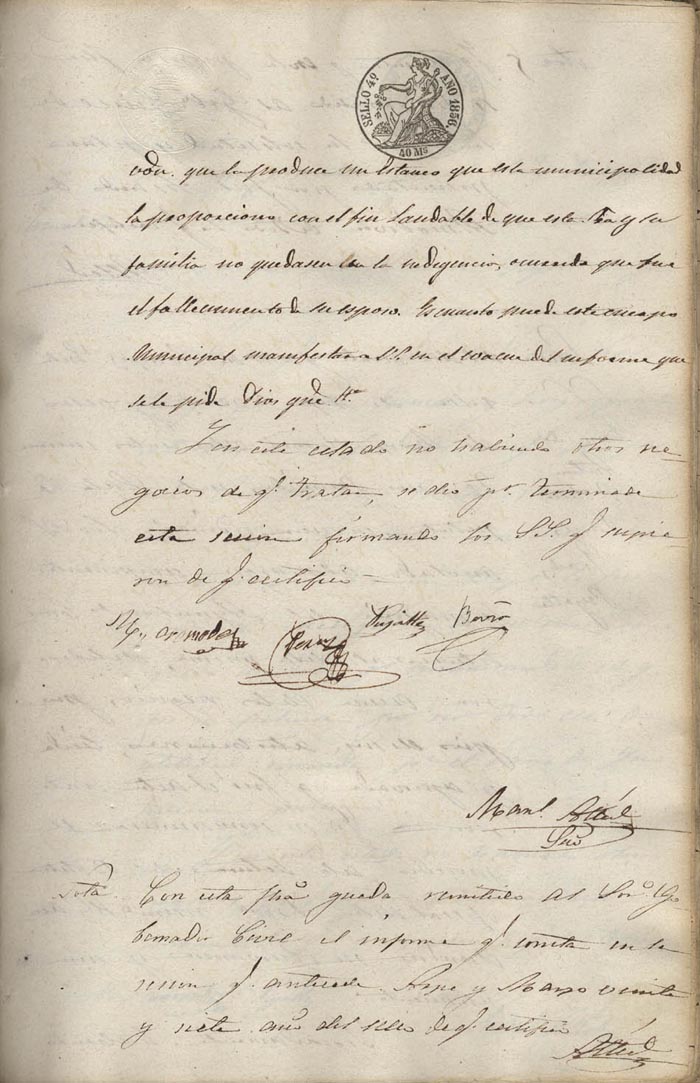 SELLO 4º AÑO 1856.
40 Ms
que la produce un Estanco que esta municipalidad
la proporciono con el fin laudable de que esta Sra y su
familia no quedasen en la indigencia, ocurrido que fue
el fallecimiento de su esposo. Es cuanto puede este cuerpo
Municipal manifestar a V.S. en el evacue del informe que
se le pide Dios gude
Y en este estado no habiendo otros ne-
gocios de q. tratar, se dió pr. terminada
esta sesion firmando los SS. q. supie-
ron de q. certifico
Manl.
Srio
Nota Con esta fha queda remitido al Sor. Go-
bernador Civil el informe q. consta en la
sesion q. antecede. y Marzo veinte
y siete año del sello de q. certifico